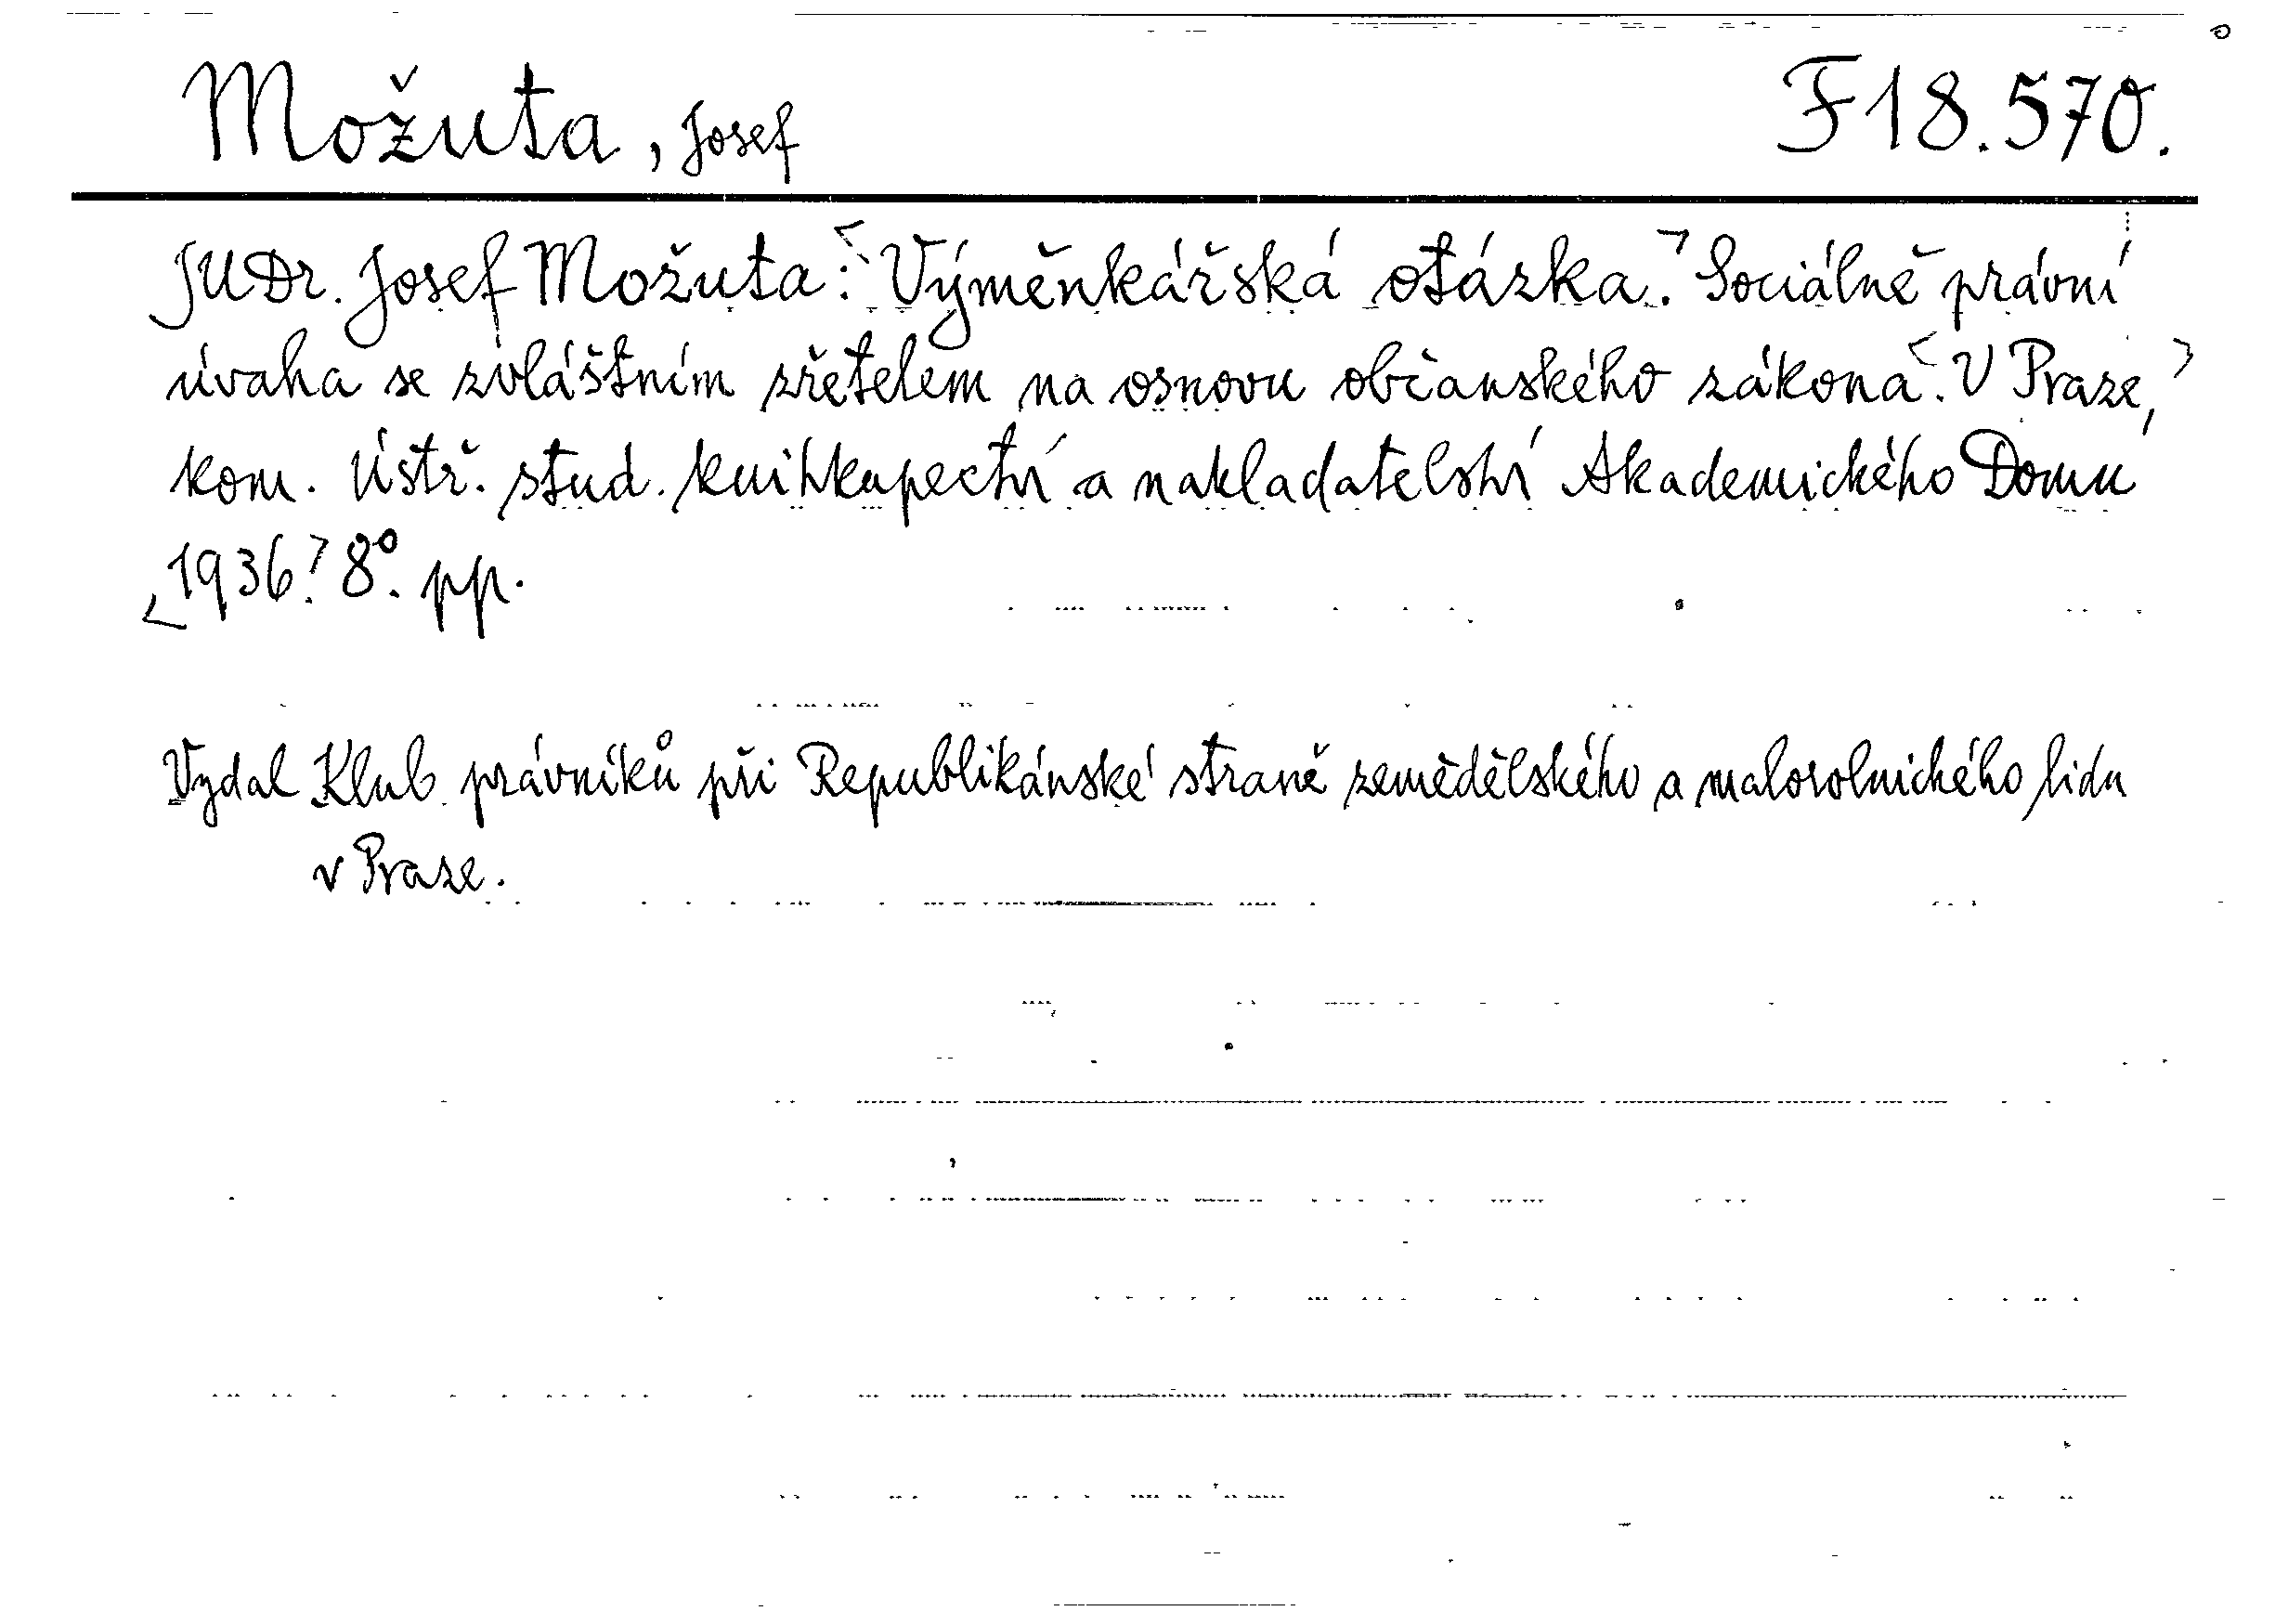 Možuta, Josef F 18.570.
JUDr. Josef Možuta: Výměnkářská otázka. Sociálně právní
úvaha se zvláštním zřetelem na osnovu občanského zákona. V Praze,
kom. Ústř. stud. knihkupectví a nakladatelství Akademického Domu
1936. 8°. pp.
Vydal Klub právníků při Republikánské straně zemědělského a malorolnického lidu
v Praze.